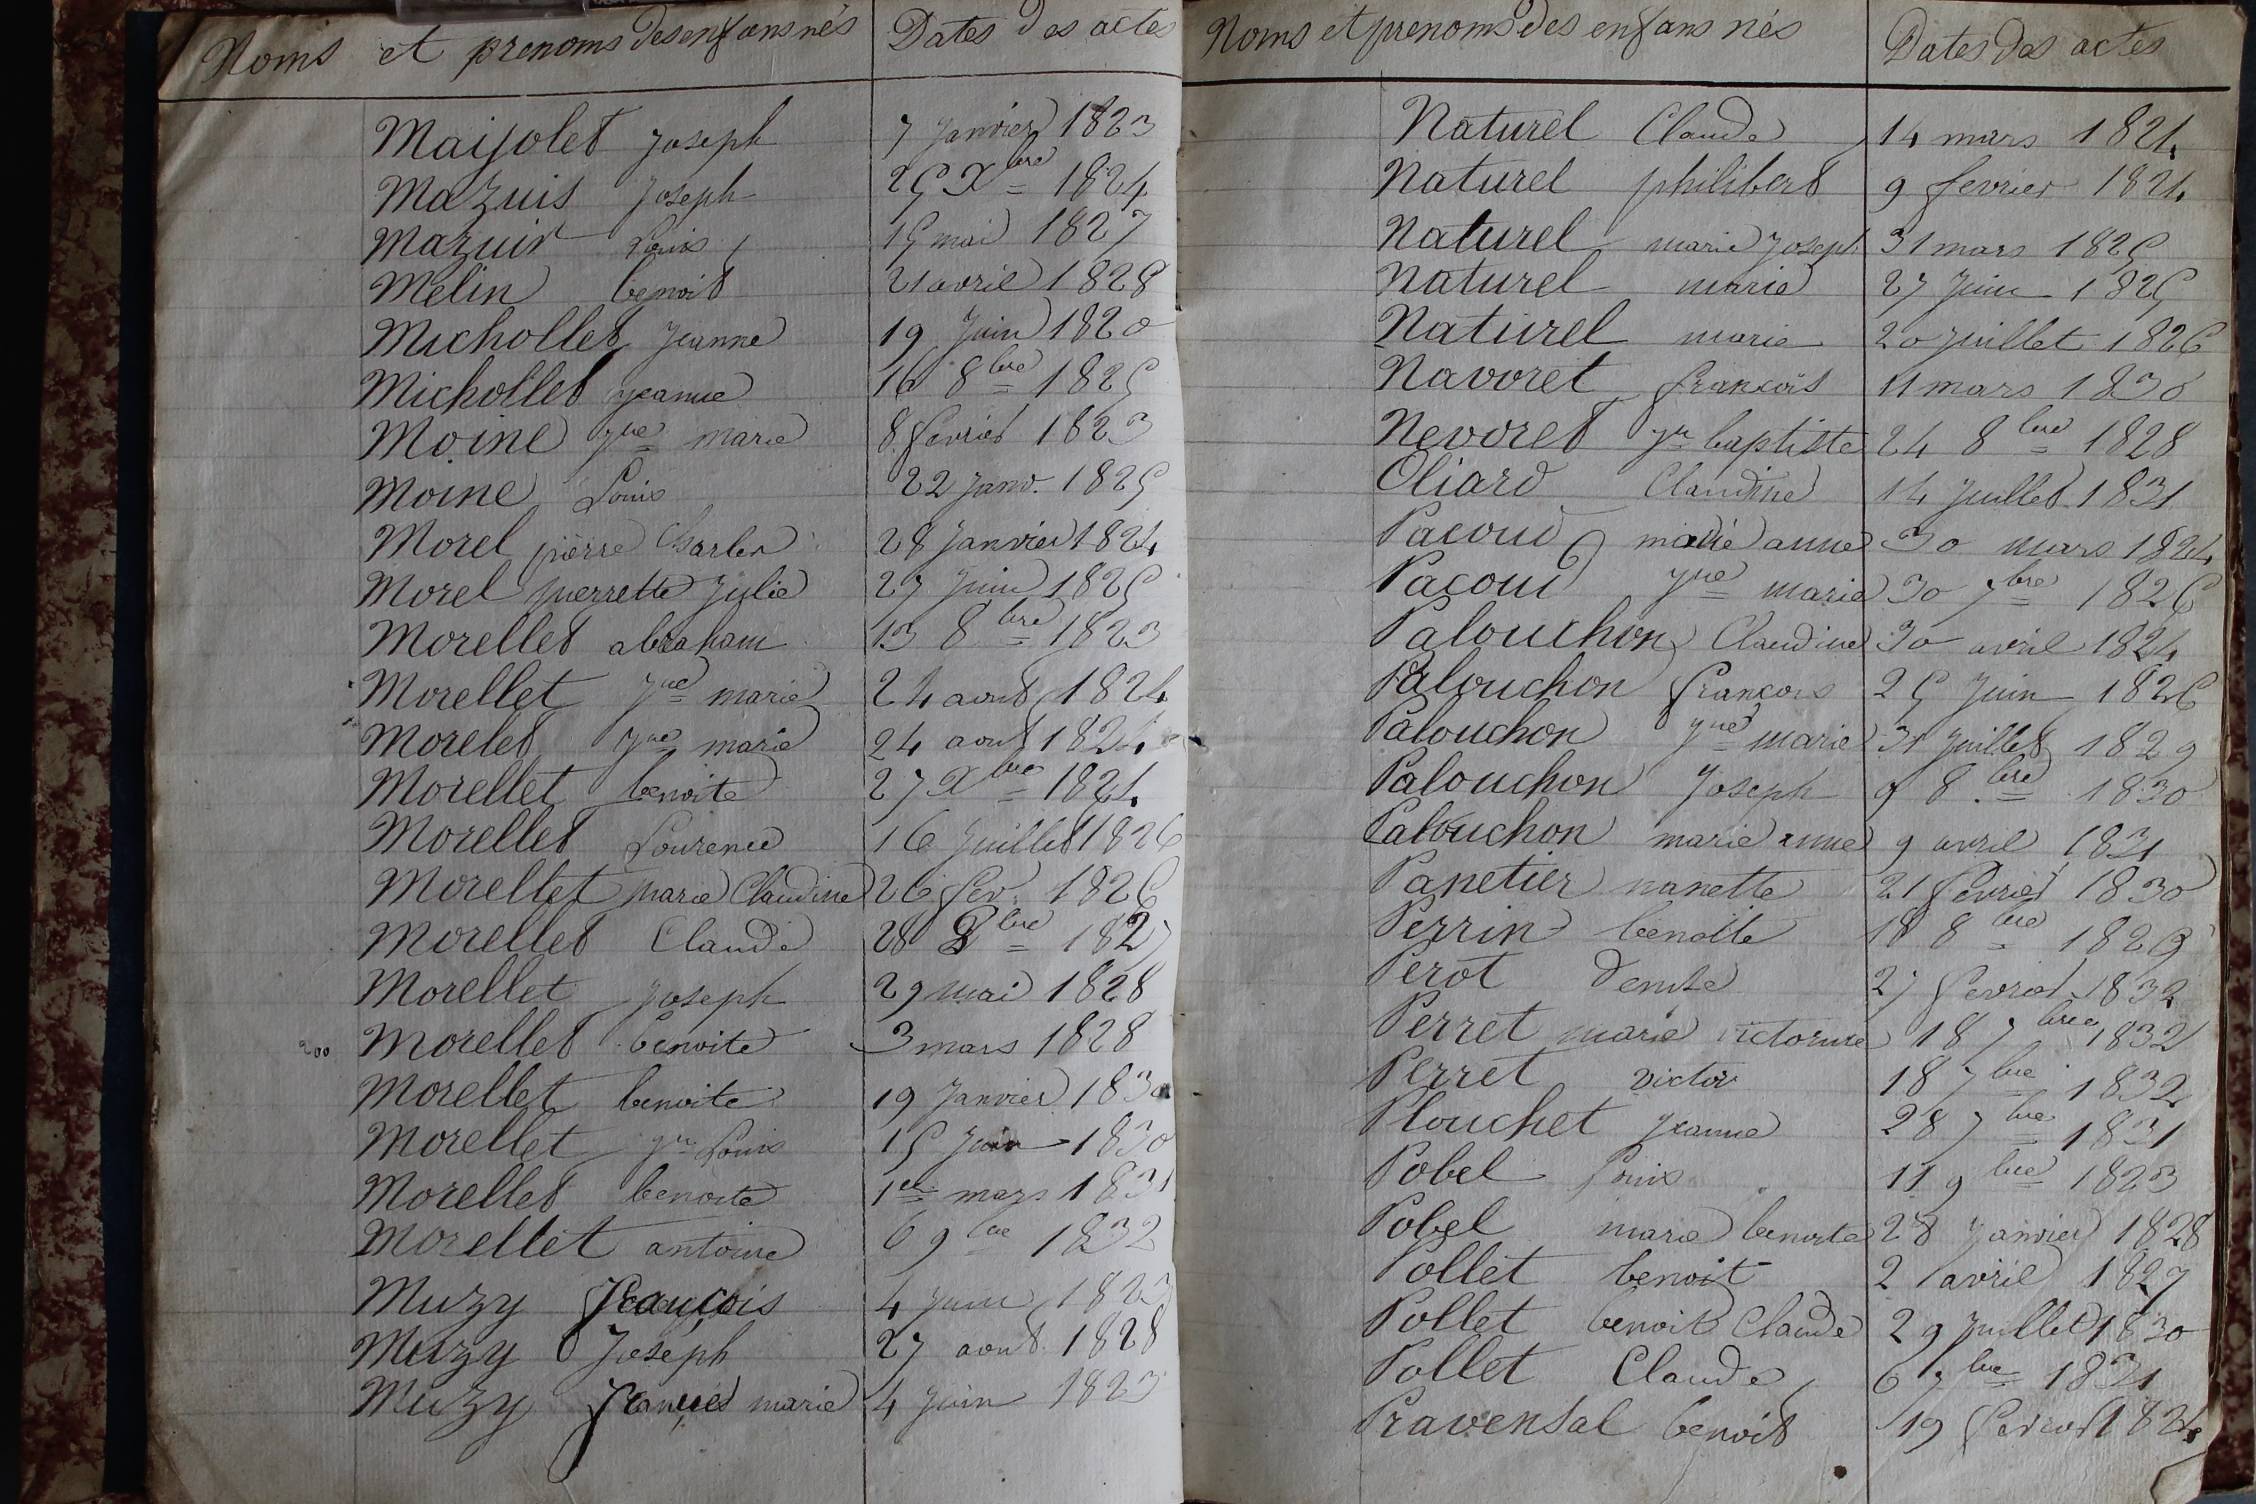 Noms et prenoms des enfans nés Dates des actes
Maijolet Joseph 7 Janvier 1823
Mazuis Joseph 25 Xbre 1824
Mazuir Louis 15 mai 1827
Mélin benoit 21 avril 1828
Michollet Jeanne 19 Juin 1820
Michollet jeanne 16 8bre 1825
Moine Jne marie 8 fevrier 1823
Moine Louis 22 Janv. 1825
Morel pierre Charles 28 Janvier 1824
Morel pierrette Julie 27 Juin 1825
Morellet abraham 13 8bre 1823
Morellet Jne marie 24 aout 1824
Morelet Jne marie 24 aout 1824
Morellet benoite 27 Xbre 1824
Morellet Laurence 16 Juillet 1826
Morellet marie Claudine 26 fev. 1826
Morellet Claude 28 8bre 1827
Morellet Joseph 29 mai 1828
200 Morellet benoite 3 mars 1828
Morellet benoite 19 Janvier 1830
Morellet Jn Louis 15 Juin 1830
Morellet benoite 1er mars 1831
Morellet antoine 6 9bre 1832
Muzy François 4 Juin 1823
Muzy Joseph 27 aout 1828
Muzy marie 4 Juin 1823
Noms et prenoms des enfans nés Dates des actes
Naturel Claude 14 mars 1824
Naturel philibert 9 fevrier 1824
Naturel marie Joseph 31 mars 1825
Naturel marie 27 Juin 1825
Naturel marie 20 Juillet 1826
Navoret françois 11 mars 1830
Nevoret Jn baptiste 24 8bre 1828
Oliard Claudine 14 Juillet 1831
Pacoud marie anne 30 mars 1824
Pacoud Jne marie 30 7bre 1826
Palouchon Claudine 30 avril 1824
Palouchon françois 25 Juin 1826
Palouchon Jne marie 31 Juillet 1829
Palouchon Joseph 9 8bre 1830
Palouchon marie anne 9 avril 1831
Panetier nanette 21 fevrier 1830
Perrin benoite 18 8bre 1829
Perot denise 27 fevrier 1832
Perret marie victorine 18 7bre 1832
Perret victor 18 7bre 1832
Plouchet Jeanne 28 7bre 1831
Pobel Louis 11 9bre 1823
Pobel marie benoite 28 Janvier 1828
Pollet benoit 2 avril 1827
Pollet benoit Claude 29 Juillet 1830
Pollet Claude 6 7bre 1831
Pravensal benoit 19 fevrier 1824